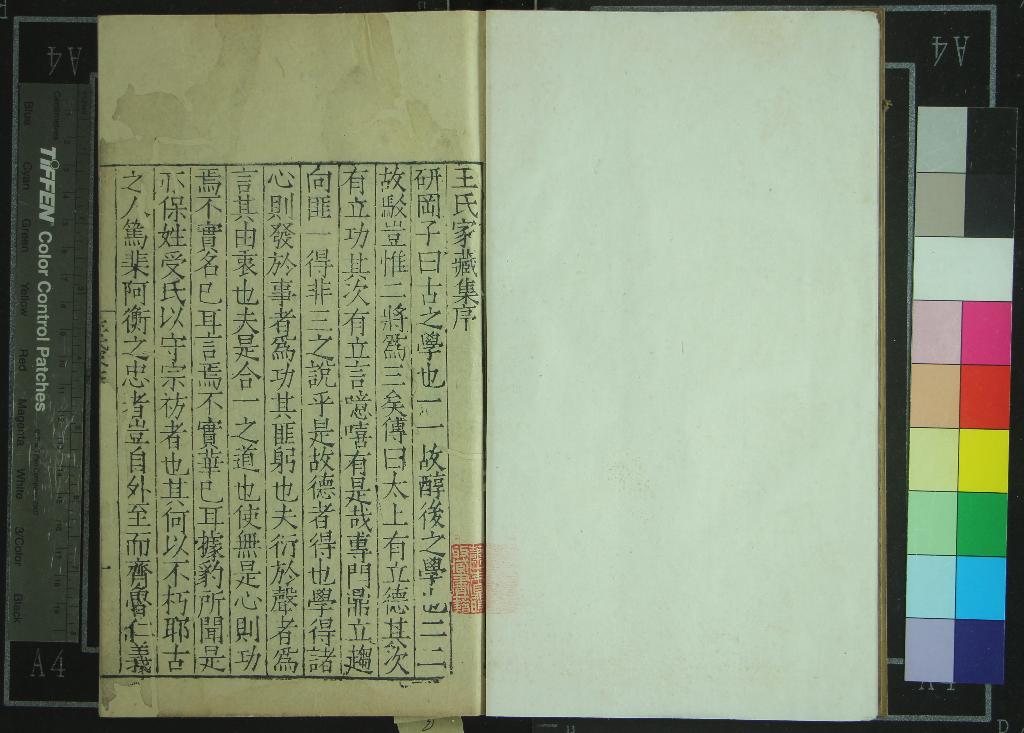 王氏家藏集序
研岡子曰古之學也一一故醇後之學也二二
故駁豈惟二將爲三矣傳曰太上有立德其次
有立功其次有立言噫嘻有是哉專門鼎立趨
向匪一得非三之說乎是故德者得也學得諸
心則發於事者爲功其匪躬也夫衍於聲者爲
言其由衷也夫是合一之道也使無是心則功
焉不實名已耳言焉不實華已耳據豹所聞是
亦保姓受氏以守宗祊者也其何以不朽耶古
之人篤棐阿衡之忠者豈自外至而齊魯仁義
一
TIFFEN Color Control Patches
Blue Cyan Green Yellow Red Magenta White 3/Color Black
A4
A4
A4
A4